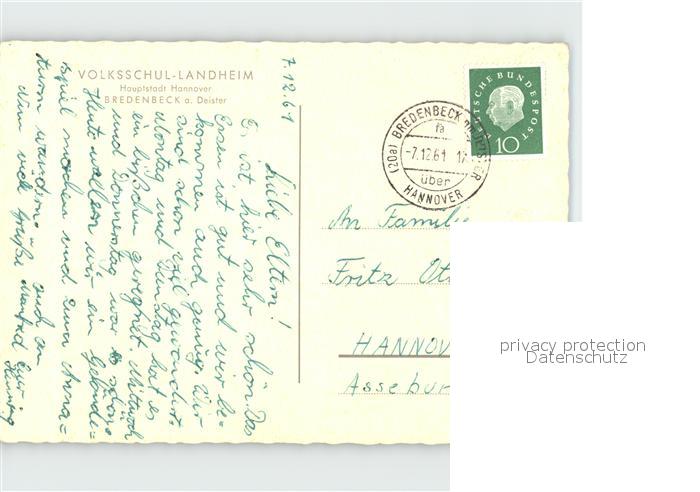 VOLKSSCHUL-LANDHEIM
Hauptstadt Hannover
BREDENBECK a. Deister
7.12.61
Liebe Eltern!
Es ist hier sehr schön. Das
Essen ist gut und wir be-
kommen auch genug. Wir
sind schon viel gewandert.
Montag und Dienstag hat es
ein bißchen geregnet. Mittwoch
und Donnerstag war es schön.
Heute wollen wir ein Gelände-
spiel machen und zum Anna-
turm wandern.
viele Grüße Manfred
DEUTSCHE BUNDESPOST
10
(20a) BREDENBECK
fa
-7.12.61 17
über
HANNOVER
An Familie
Fritz Ott
HANNOV
Assebur
privacy protection
Datenschutz